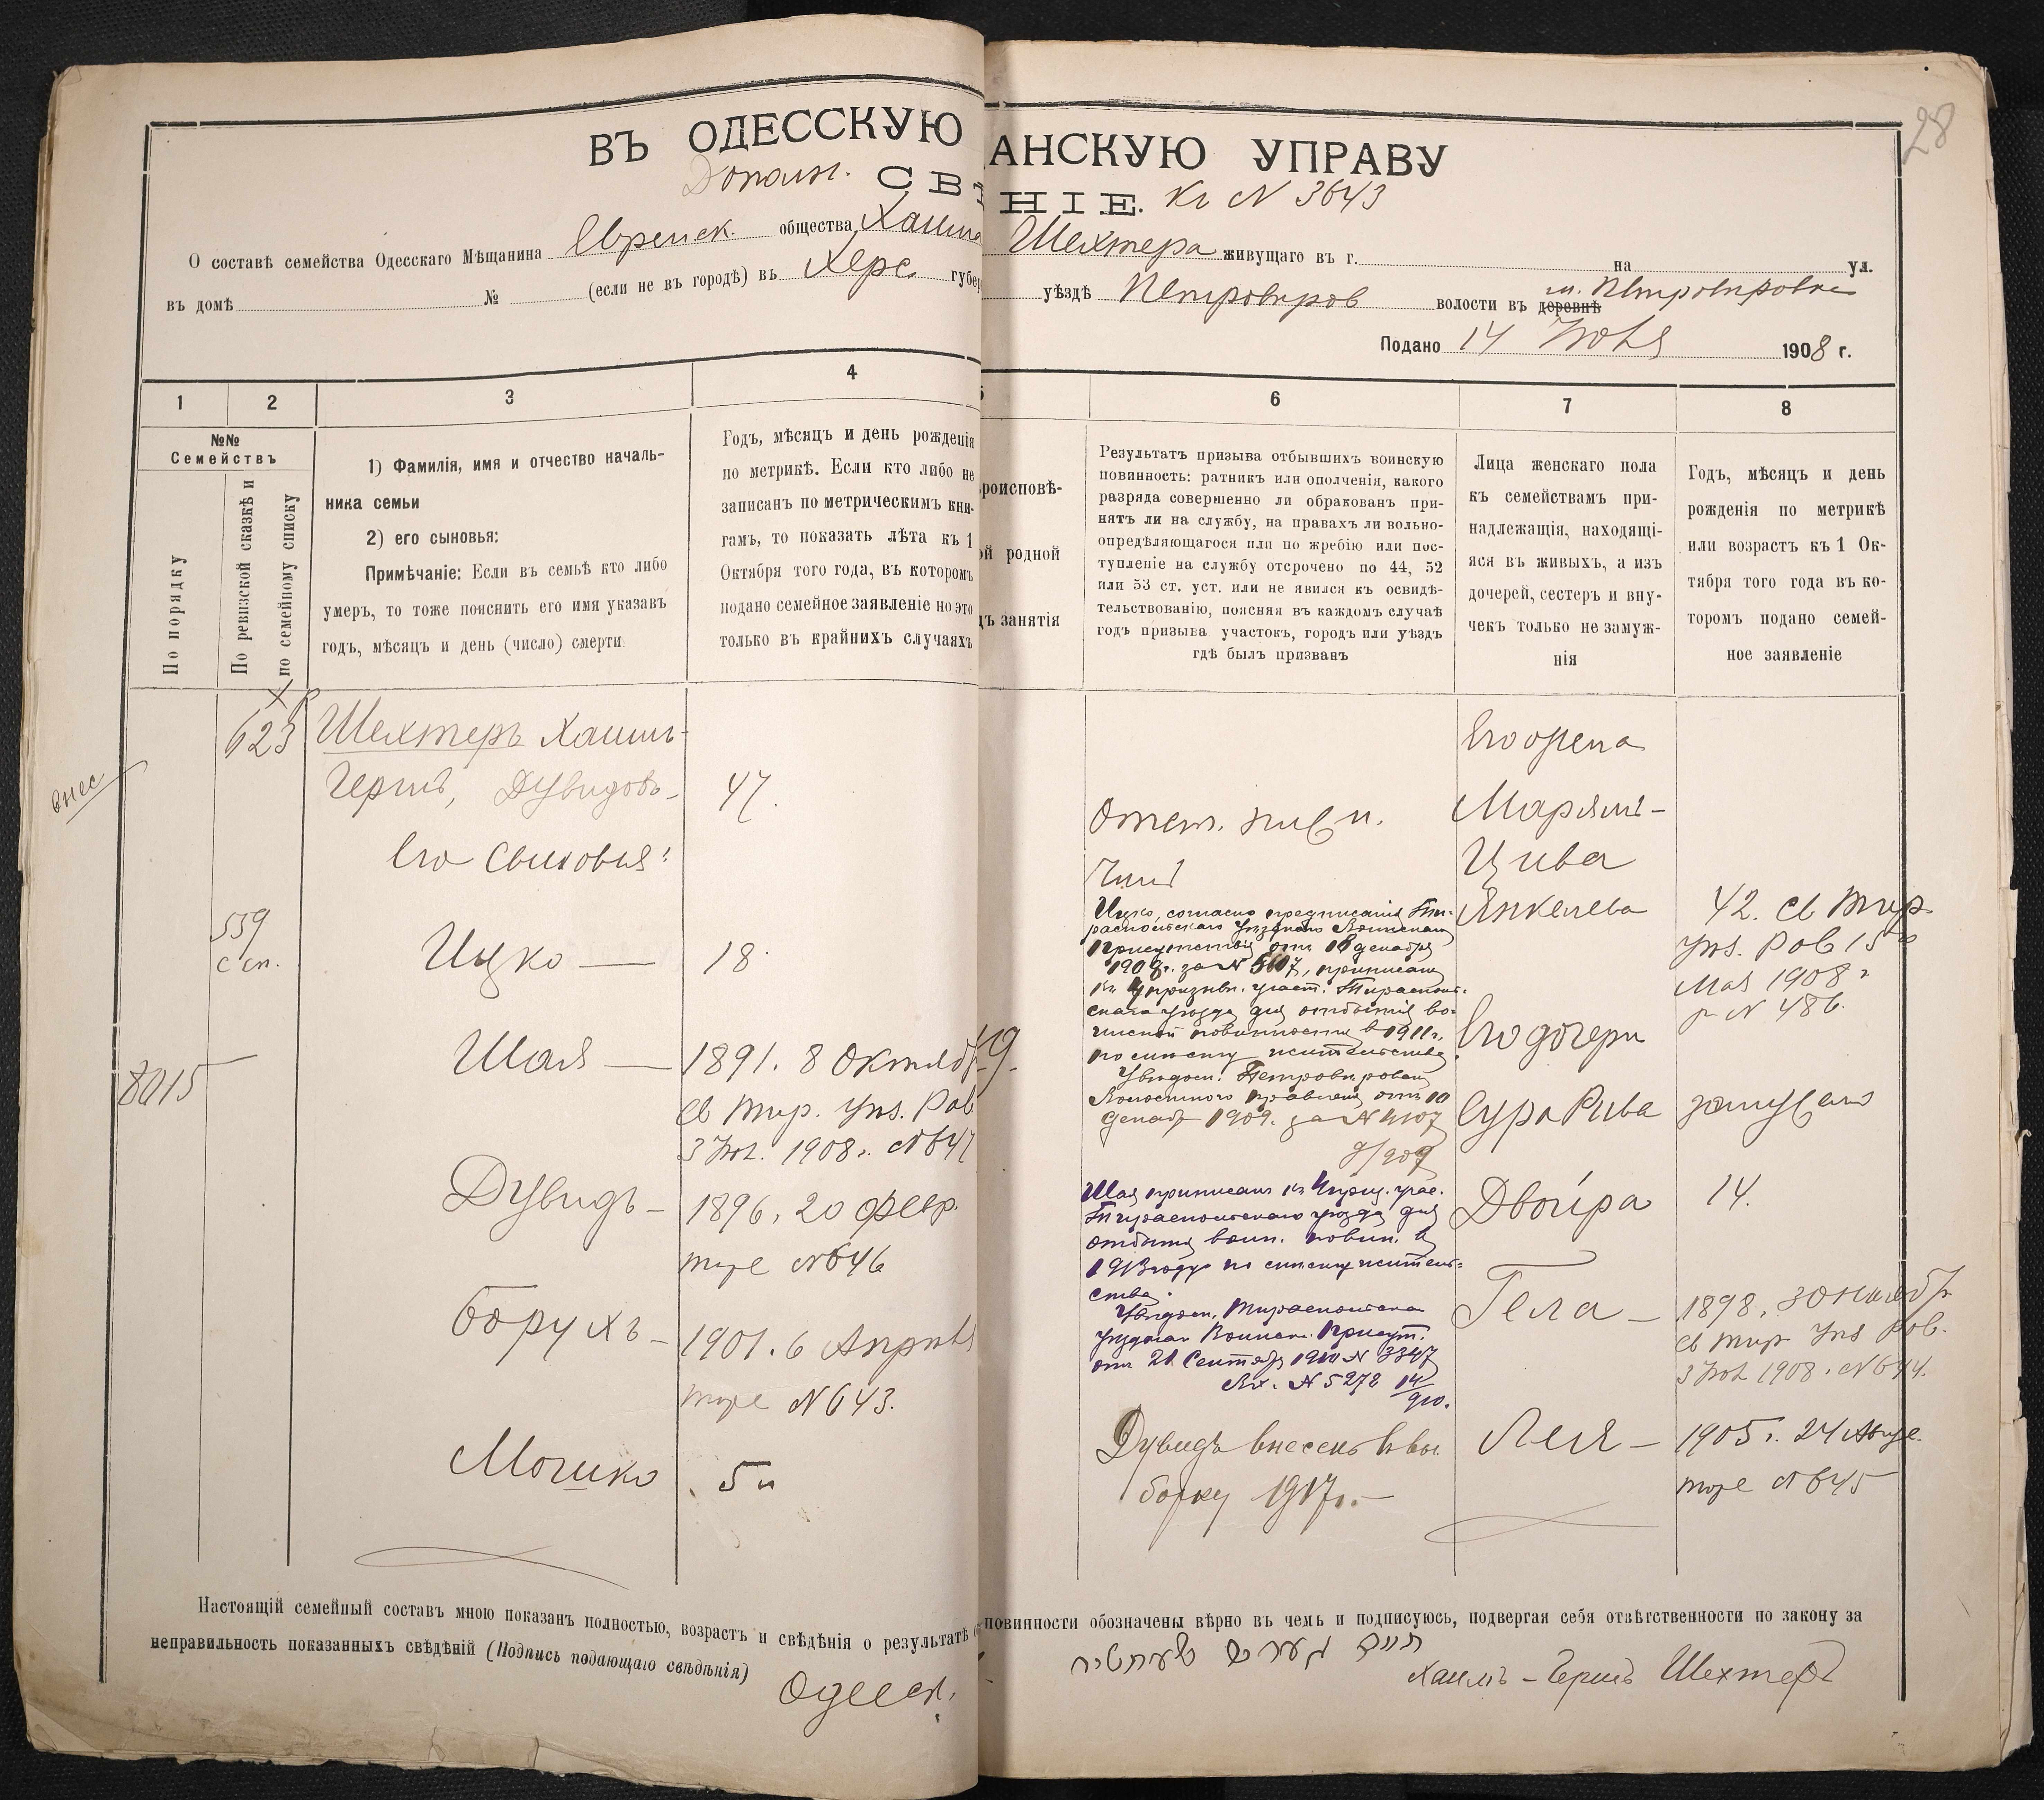 28
ВЪ ОДЕССКУЮ АНСКУЮ УПРАВУ
Дополн. СВѢ НІЕ. Къ N 3643
О составѣ семейства Одесскаго Мѣщанина Еврейск. общества Хаима Шехтера живущаго въ г. на ул.
въ домѣ № (если не въ городѣ) въ Херс. губер уѣздѣ Петровиров волости въ деревнѣ м. Петровировке
Подано 14 Іюля 1908 г.
1 2 3 4 5 6 7 8
№№ Семействъ
По порядку
По ревизской сказкѣ и
по семейному списку
1) Фамилія, имя и отчество началь-
ника семьи
2) его сыновья:
Примѣчаніе: Если въ семьѣ кто либо
умеръ, то тоже пояснить его имя указавъ
годъ, мѣсяцъ и день (число) смерти
Годъ, мѣсяцъ и день рожденія
по метрикѣ. Если кто либо не
записанъ по метрическимъ кни-
гамъ, то показать лѣта къ 1
Октября того года, въ которомъ
подано семейное заявленіе но это
только въ крайнихъ случаяхъ
роисповѣ-
ой родной
дъ занятія
Результатъ призыва отбывшихъ воинскую
повинность: ратникъ или ополченія, какого
разряда совершенно ли обракованъ при-
нятъ ли на службу, на правахъ ли вольно-
опредѣляющагося или по жребію или пос-
тупленіе на службу отсрочено по 44, 52
или 53 ст. уст. или не явился къ освидѣ-
тельствованію, поясняя въ каждомъ случаѣ
годъ призыва участокъ, городъ или уѣздъ
гдѣ былъ призванъ
Лица женскаго пола
къ семействамъ при-
надлежащія, находящі-
яся въ живыхъ, а изъ
дочерей, сестеръ и вну-
чекъ только не замуж-
нія
Годъ, мѣсяцъ и день
рожденія по метрикѣ
или возрастъ къ 1 Ок-
тября того года въ ко-
торомъ подано семей-
ное заявленіе
внес
623
Шехтеръ Хаимъ-
Гершъ, Дувидовъ-
47.
Его сыновья:
539
с сп.
Ицко — 18.
8015
Шая — 1891. 8 Октяб 19
св Тир. Уѣз. Рав
3 Іюл. 1908 г. N 647
Дувидъ — 1896, 20 февр.
тоже N 646
Борухъ — 1901. 6 Апрѣля
тоже N 643.
Мошко 5 и
Ицко, согласно предписанія Ти-
распольскаго Уѣзднаго Воинскаго
Присутствія отъ 18 декабря
1909 г. за N 5607, приписанъ
къ 4 призывн. участ. Тирасполь-
скаго уѣзда для отбытія во-
инской повинности в 1911 г.
по списку жительства.
Уведом. Петровировск
Волостного правленія отъ 10
декаб 1909. за N 4107
Шая приписанъ къ 4 приз. учас.
Тираспольскаго уѣзда для
отбытія воин. повин. в
1913 году по списку житель-
ства.
Уведом. Тираспольскаго
уѣзднаго Воинск. Присут.
отъ 21 Сентяб 1910 N 3347
Вх. N 5278 14/910.
Дувидъ внесенъ въ вы
борку 1917 г. —
Его жена
Марьямъ-
Цива
Янкелева
42. Св Тир
уѣз. Рав 15го
Мая 1908 г
N 486.
Его дочери
Сура Рива замужемъ
Двойра 14.
Гела — 1898, 30 Ноябр
св Тир Уѣз Рав.
3 Іюл 1908. N 644.
Лея — 1905 г. 24 Авгус
тоже N 645
Настоящій семейный составъ мною показанъ полностью, возрастъ и свѣдѣнія о результатѣ повинности обозначены вѣрно въ чемъ и подписуюсь, подвергая себя отвѣтственности по закону за
неправильность показанныхъ свѣдѣній (Подпись подающаго свѣдѣнія)
חיים גערש שעחטיר
Одесск.
Хаимъ-Гершъ Шехтеръ